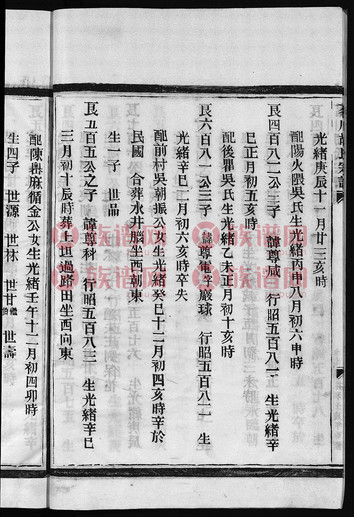 光緒庚辰十一月廿三亥時
配陽火隈吳氏生光緒丙申八月初六申時
艮四百八二公三子 諱尊咸 行昭五百八 生光緒辛
巳正月初五亥時
配後瞿吳氏生光緒乙未正月初十亥時
艮六百八一公三子 諱尊 字嚴球 行昭五百八二 生
光緒辛巳二月初六亥時卒失
配前村吳朝振公女生光緒癸巳十二月初四亥時辛於
民國 合葬水井腦坐西朝東
生一子 世品
艮五百五公之子 諱尊科 行昭五百八三 生光緒辛巳
三月初十辰時葬上垣過路田坐西向東
配陳 麻循金公女生光緒壬午十二月初四卯時
生四子 世源 世林 世甘 世壽